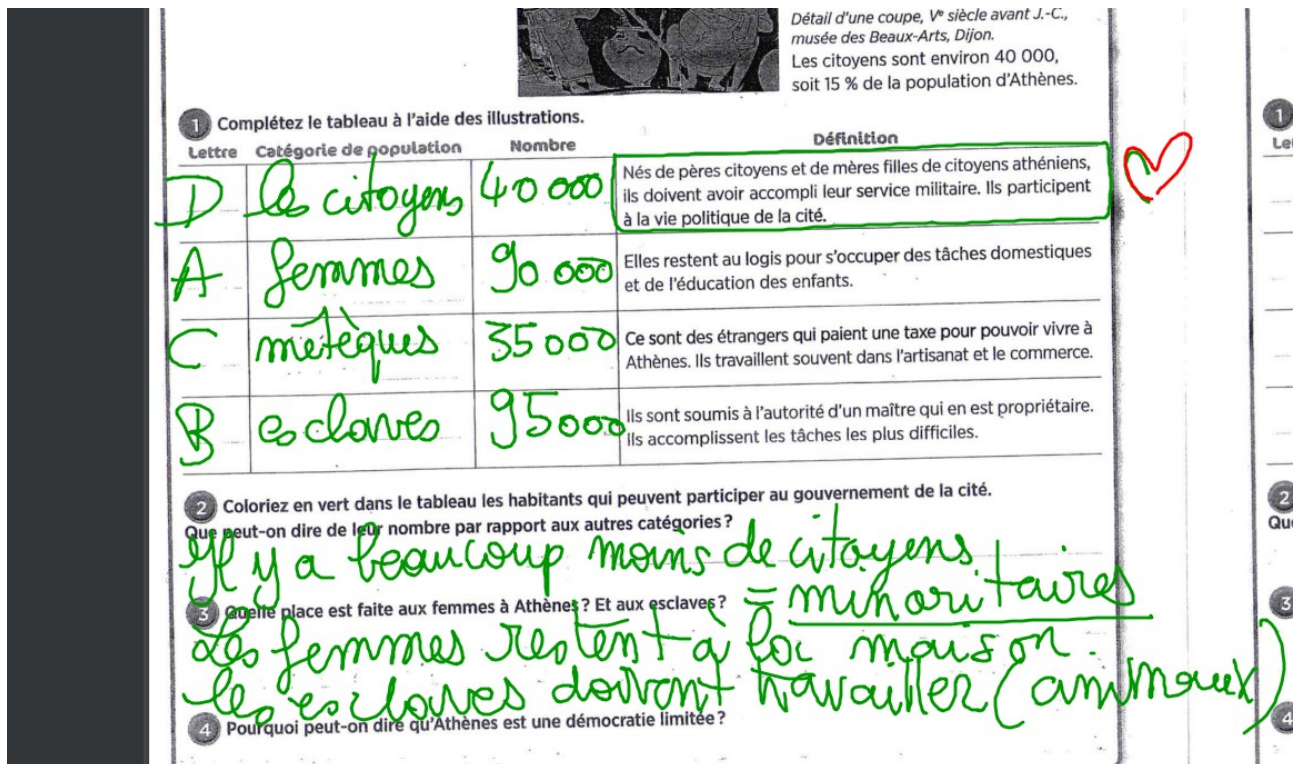 Détail d'une coupe, Vᵉ siècle avant J.-C.,
musée des Beaux-Arts, Dijon.
Les citoyens sont environ 40 000,
soit 15 % de la population d'Athènes.
1 Complétez le tableau à l'aide des illustrations.
Lettre Catégorie de population Nombre Définition
D les citoyens 40 000 Nés de pères citoyens et de mères filles de citoyens athéniens,
ils doivent avoir accompli leur service militaire. Ils participent
à la vie politique de la cité.
A femmes 90 000 Elles restent au logis pour s'occuper des tâches domestiques
et de l'éducation des enfants.
C métèques 35 000 Ce sont des étrangers qui paient une taxe pour pouvoir vivre à
Athènes. Ils travaillent souvent dans l'artisanat et le commerce.
B esclaves 95 000 Ils sont soumis à l'autorité d'un maître qui en est propriétaire.
Ils accomplissent les tâches les plus difficiles.
2 Coloriez en vert dans le tableau les habitants qui peuvent participer au gouvernement de la cité.
Que peut-on dire de leur nombre par rapport aux autres catégories ?
Il y a beaucoup moins de citoyens
= minoritaires
3 Quelle place est faite aux femmes à Athènes ? Et aux esclaves ?
Les femmes restent à la maison.
les esclaves doivent travailler (animaux)
4 Pourquoi peut-on dire qu'Athènes est une démocratie limitée ?
1
Le
2
Qu
3
4